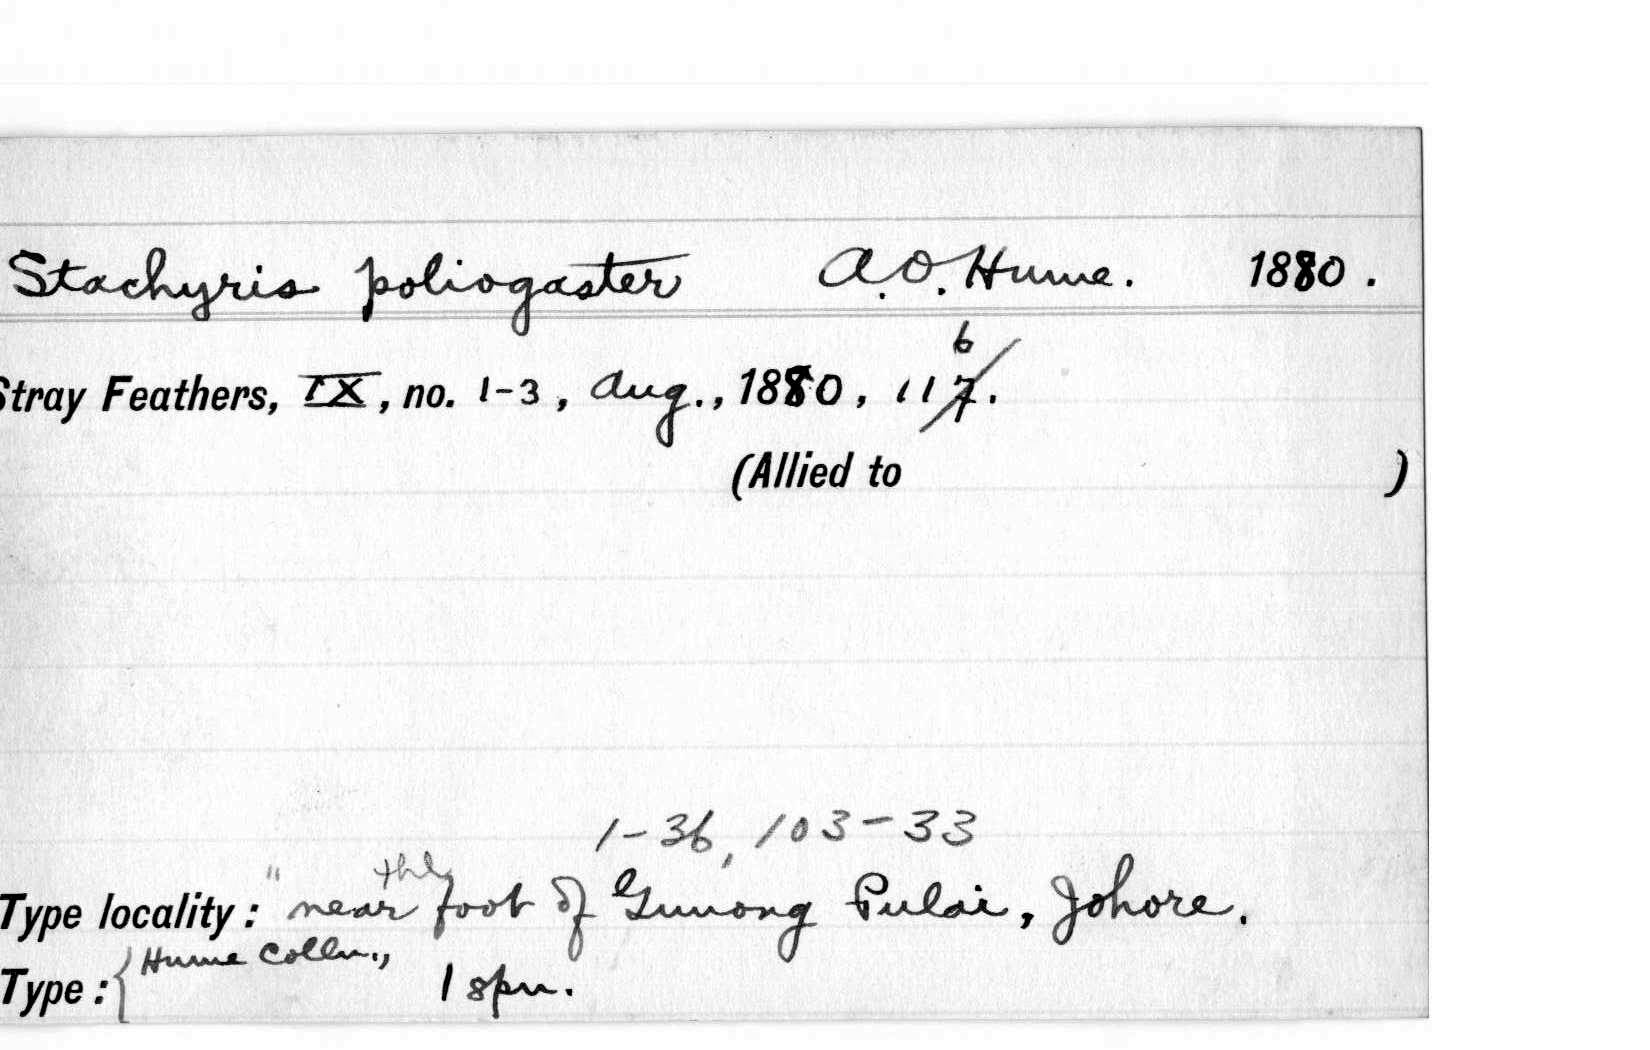 Stachyris poliogaster A.O. Hume. 1880.
Stray Feathers, IX, no. 1-3, Aug., 1880, 117. 6
(Allied to )
1-36, 103-33
Type locality: "near the foot of Gunong Pulai, Johore.
Type: { Hume Colln., 1 spn.